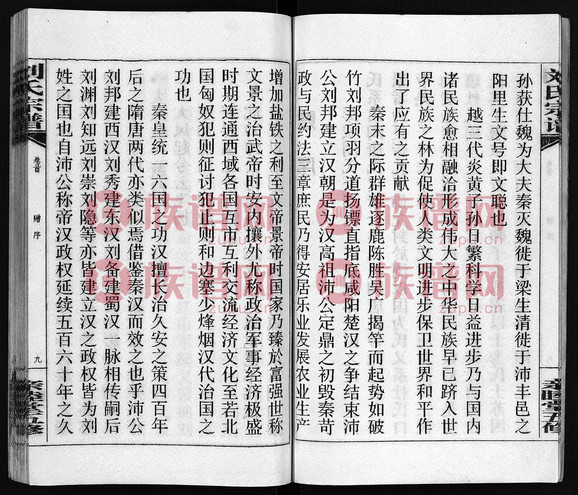 刘氏宗谱
孙获仕魏为大夫秦灭魏徙于梁生清徙于沛丰邑之
阳里生文号即文聪也
越三代炎黄子孙日繁科学日益进步乃与国内
诸民族愈相融洽形成伟大之中华民族早已跻入世
界民族之林为促使人类文明进步保卫世界和平作
出了应有之贡献
秦末之际群雄逐鹿陈胜吴广揭竿而起势如破
竹刘邦项羽分道扬镖直指底咸阳楚汉之争结束沛
公刘邦建立汉朝是为汉高祖沛公定鼎之初毁秦苛
政与民约法三章庶民乃得安居乐业发展农业生产
亲睦堂五修
刘氏宗谱
卷首
赠序
九
亲睦堂五修
增加盐铁之利至文帝景帝时国家乃臻於富强世称
文景之治武帝时安内攘外尤称政治军事经济极盛
时期连通西域各国互市互利交流经济文化至若北
国匈奴犯则征讨犯止则和边塞少烽烟汉代治国之
功也
秦皇统一六国之功汉擅长治久安之策四百年
后之隋唐两代亦类似借鉴秦汉而效之也乎沛公
刘邦建西汉刘秀建东汉刘备建蜀汉一脉相传嗣后
刘渊刘知远刘崇刘隐等亦皆建立汉之政权皆为刘
姓之国也自沛公称帝汉政权延续五百六十年之久
族谱网